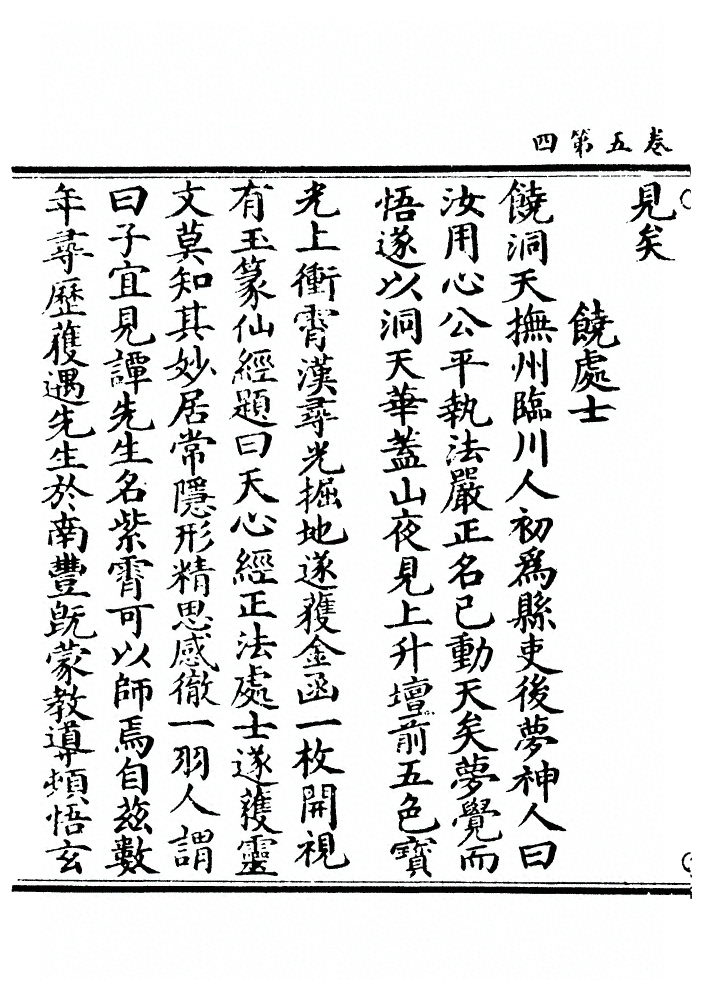 卷五第四
見矣
饒處士
饒洞天撫州臨川人初爲縣吏後夢神人曰
汝用心公平執法嚴正名已動天矣夢覺而
悟遂以洞天華蓋山夜見上升壇前五色寳
光上衝霄漢尋光掘地遂獲金函一枚開視
有玉篆仙經題曰天心經正法處士遂獲靈
文莫知其妙居常隱形精思感徹一羽人謂
曰子宜見譚先生名紫霄可以師焉自兹數
年尋歷獲遇先生於南豐旣蒙教導頻悟玄